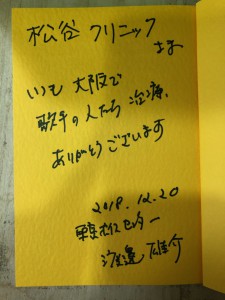 松谷 クリニック
さま
いつも 大阪で
歌手の人たち 治療、
ありがとうございます
2018.12.20
東京ボイスセンター
渡邊 雄介